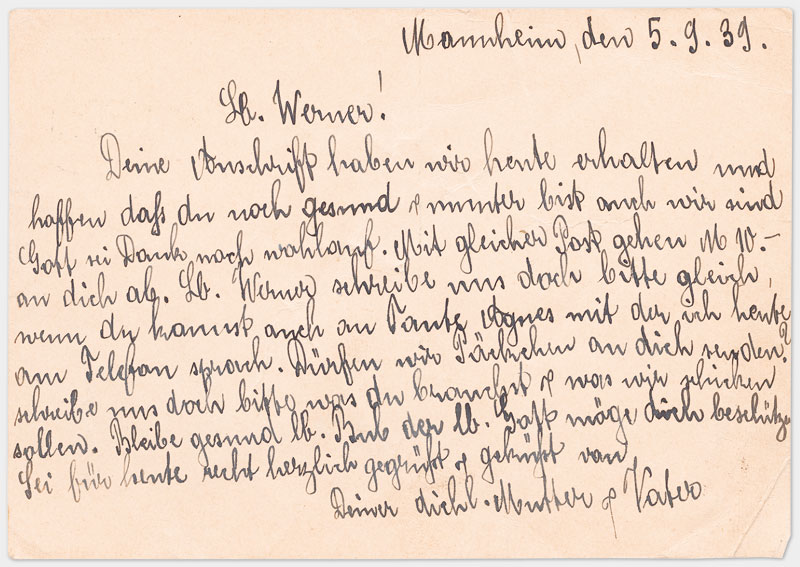 Mannheim, den 5.9.39.
Lb. Werner!
Deine Anschrift haben wir heute erhalten und
hoffen daß du noch gesund & munter bist auch wir sind
Gott sei Dank noch wohlauf. Mit gleicher Post gehen M 10.-
an dich ab. Lb. Werner schreibe uns doch bitte gleich,
wenn du kannst auch an Tante Agnes mit der ich heute
am Telefon sprach. Dürfen wir Päckchen an dich senden?
schreibe uns doch bitte was du brauchst & was wir schicken
sollen. Bleibe gesund lb. Bub der lb. Gott möge dich beschütze
Sei für heute recht herzlich gegrüßt & geküßt von
Deiner dichl. Mutter & Vater